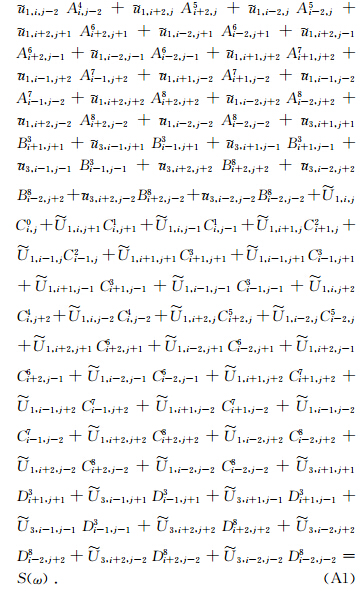 ũ_{1,i,j-2} A^4_{i,j-2} + ũ_{1,i+2,j} A^5_{i+2,j} + ũ_{1,i-2,j} A^5_{i-2,j} +
ũ_{1,i+2,j+1} A^6_{i+2,j+1} + ũ_{1,i-2,j+1} A^6_{i-2,j+1} + ũ_{1,i+2,j-1}
A^6_{i+2,j-1} + ũ_{1,i-2,j-1} A^6_{i-2,j-1} + ũ_{1,i+1,j+2} A^7_{i+1,j+2} +
ũ_{1,i-1,j+2} A^7_{i-1,j+2} + ũ_{1,i+1,j-2} A^7_{i+1,j-2} + ũ_{1,i-1,j-2}
A^7_{i-1,j-2} + ũ_{1,i+2,j+2} A^8_{i+2,j+2} + ũ_{1,i-2,j+2} A^8_{i-2,j+2} +
ũ_{1,i+2,j-2} A^8_{i+2,j-2} + ũ_{1,i-2,j-2} A^8_{i-2,j-2} + ũ_{3,i+1,j+1}
B^3_{i+1,j+1} + ũ_{3,i-1,j+1} B^3_{i-1,j+1} + ũ_{3,i+1,j-1} B^3_{i+1,j-1} +
ũ_{3,i-1,j-1} B^3_{i-1,j-1} + ũ_{3,i+2,j+2} B^8_{i+2,j+2} + ũ_{3,i-2,j+2}
B^8_{i-2,j+2} + ũ_{3,i+2,j-2} B^8_{i+2,j-2} + ũ_{3,i-2,j-2} B^8_{i-2,j-2} + Ũ_{1,i,j}
C^0_{i,j} + Ũ_{1,i,j+1} C^1_{i,j+1} + Ũ_{1,i,j-1} C^1_{i,j-1} + Ũ_{1,i+1,j} C^2_{i+1,j} +
Ũ_{1,i-1,j} C^2_{i-1,j} + Ũ_{1,i+1,j+1} C^3_{i+1,j+1} + Ũ_{1,i-1,j+1} C^3_{i-1,j+1}
+ Ũ_{1,i+1,j-1} C^3_{i+1,j-1} + Ũ_{1,i-1,j-1} C^3_{i-1,j-1} + Ũ_{1,i,j+2}
C^4_{i,j+2} + Ũ_{1,i,j-2} C^4_{i,j-2} + Ũ_{1,i+2,j} C^5_{i+2,j} + Ũ_{1,i-2,j} C^5_{i-2,j}
+ Ũ_{1,i+2,j+1} C^6_{i+2,j+1} + Ũ_{1,i-2,j+1} C^6_{i-2,j+1} + Ũ_{1,i+2,j-1}
C^6_{i+2,j-1} + Ũ_{1,i-2,j-1} C^6_{i-2,j-1} + Ũ_{1,i+1,j+2} C^7_{i+1,j+2} +
Ũ_{1,i-1,j+2} C^7_{i-1,j+2} + Ũ_{1,i+1,j-2} C^7_{i+1,j-2} + Ũ_{1,i-1,j-2}
C^7_{i-1,j-2} + Ũ_{1,i+2,j+2} C^8_{i+2,j+2} + Ũ_{1,i-2,j+2} C^8_{i-2,j+2} +
Ũ_{1,i+2,j-2} C^8_{i+2,j-2} + Ũ_{1,i-2,j-2} C^8_{i-2,j-2} + Ũ_{3,i+1,j+1}
D^3_{i+1,j+1} + Ũ_{3,i-1,j+1} D^3_{i-1,j+1} + Ũ_{3,i+1,j-1} D^3_{i+1,j-1} +
Ũ_{3,i-1,j-1} D^3_{i-1,j-1} + Ũ_{3,i+2,j+2} D^8_{i+2,j+2} + Ũ_{3,i-2,j+2}
D^8_{i-2,j+2} + Ũ_{3,i+2,j-2} D^8_{i+2,j-2} + Ũ_{3,i-2,j-2} D^8_{i-2,j-2} =
S(ω). (A1)